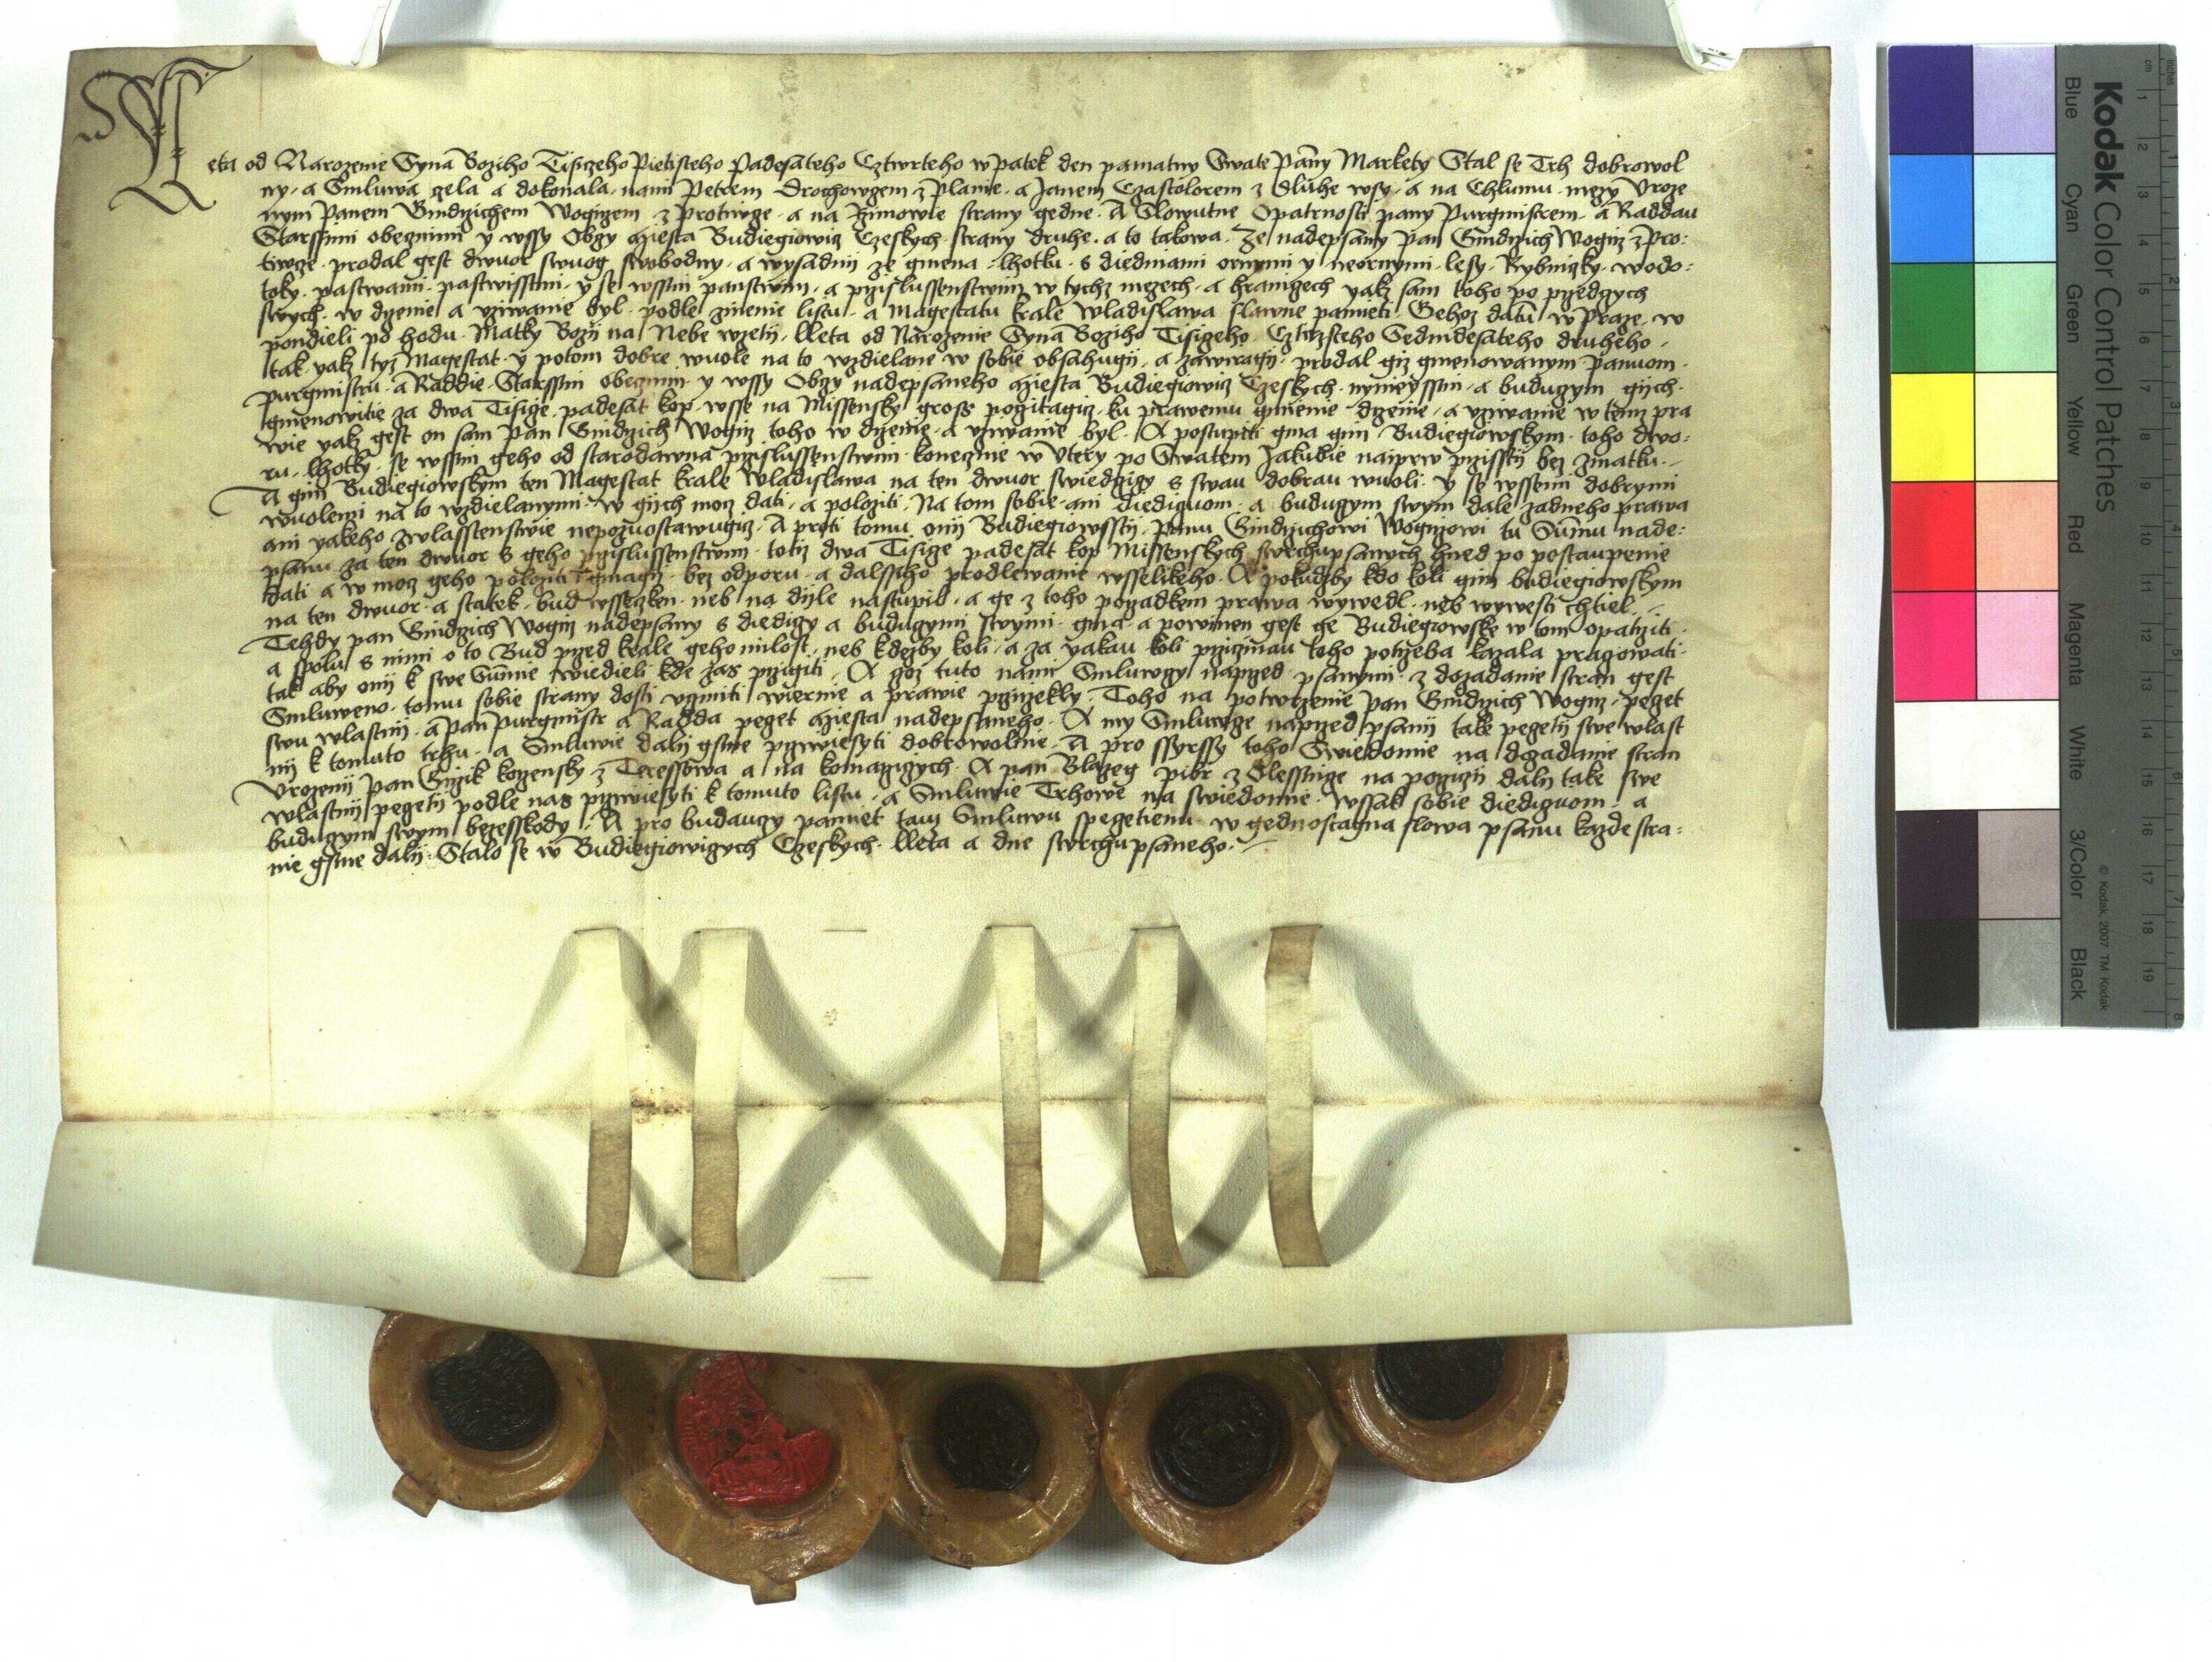 Leta od Narozenie Syna Boziho Tisiczeho Pietisteho Padesateho Cztwrteho w Patek den pamatny Swate Panny Markety Stal se Trh dobrowol
ny, a Smluwa zela a dokonala, nami Petrem Drochowgem z Plane, a Janem Czastolorem z Dluhe wsy, a na Chlumu mezy Uroze
nym Panem Gindrzichem Wogirzem z Protiwze, a na Zimowie strany gedne. A Slowutne Opatrnosti pany Purgmistrem, a Raddau
Starssimi obecznimi y wssy Obczy Miesta Budiegiowicz Czeskych strany druhe, a to takowa. Ze nadepsany Pan Gindrzich Wogirz z Pro:
tiwcze, prodal gest dwuor swuog swobodny, a wysadnij ze gmena Lhotku, s diedinami ornymi y neornymi, lesy, Rybniczky, wodo:
toky, pastwami, pastwisstmi, y se wssim panstwim, a przislussenstwim w tychz mezech, a hranicgech yakz sam toho po przedczych
swych w drzenie a uziwanie byl, podle znienie listu, a Magestatu krale Wladislawa slawne pamieti. Gehoz datum w Praze, w
pondieli po hodu Matky Bozij na Nebe wzetij, lleta od Narozenie Syna Boziho Tisiczeho Cztirzsteho Sedmdesateho druheho,
tak yakz tyz Magestat y potom dobre wuole na to wzdielane w sobie obsahugij, a zawiragij, prodal giz gmenowanym Panuom
Purgmistru, a Raddie, Starssim obecznim y wssy Obczy nadepsaneho Miesta Budiegiowicz Czeskych, nyniegssim, a buduczym gijch
gmenowitie za dwa Tisicze padesat kop, wsse na Missensky gross pocziitagicz, ku prawemu gmienie drzenie, a uziwanie w temz pra
wie yakz gest on sam Pan Gindrzich Wogirz toho w drzenie, a uziwanie byl. A postupiti gma gim Budiegiowskym toho dwo:
ru Lhotky se wssim geho od starodawna przislussenstwim konecznie w Utery po Swatem Jakubie naiprw przisstij bez zmatku.
A gim Budiegiowskym ten Magestat krale Wladislawa na ten dwuor swiedczijcy s swau dobrau wuoli y se wssemi dobrymi
wuolemi na to wzdielanymi w gijch moc dati, a poloziti. Na tom sobie ani diediczuom a buduczym swym dale zadneho prawa
ani yakeho zwlasstenstwie nepozuostawugicz. A proti tomu onij Budiegiowsstij Panu Gindrzichowi Wogirzowi tu Summu nade:
psanu za ten dwuor s geho przislussenstwim totiz dwa Tisicze padesat kop Missenskych swrchupsanych hned po postaupenie
dati a w moc geho poloziti gmagij, bez odporu, a dalssiho prodlewanie wsselikeho. A pokudzby kdo koli gim budiegiowskym
na ten dwuor, a statek, bud wsseczken, neb na dijle nastupil, a ge z toho porzadkem prawa wywedl, neb wywesti chtiel,
Tehdy pan Gindrzich Wogirz nadepsany s diediczy a buduczymi swymi, gma a powinen gest ge Budiegiowske w tom opatrziti
a spolu s nimi o to Bud przed krale geho milost, neb kdezby koli, a za yakau koli przicziinau toho potrzeba kazala praczowati
tak aby onij k swe Summie wiedieli kde zas przigiti. A coz tuto nami Smluwczy napred psanymi z dozadanie stran gest
Smluweno, tomu sobie strany dosti ucziniti wiernie a prawie przirzekly. Toho na potwrzenie Pan Gindrzich Wogirz peczet
swu wlastnij, a Pan Purgmistr a Radda peczet Miesta nadepsaneho. A my Smluwcze naprzed psanij take peczeti swe wlast
nij k tomuto trhu, a Smluwie dali gsme przywiesyti dobrowolnie. A pro ssyrssy toho Swiedomie na dozadanie stran
Urozenij Pan Girzik korzensky z Teressowa a na komarziczych. A pan Blazeg Pibr z Olessnicze na porzicij dali take swe
wlastnij peczeti podle nas przywiesyti k tomuto listu, a Smluwie Trhowe na swiedomie, wssak sobie diediczuom, a
buduczym swym bezesskody. A pro budauczy pamiet tau Smluwu s peczetiemi w gednostagna slowa psanu kazde stra:
nie gsme dali. Stalo se w Budiegiowiczych Czeskych lleta a dne swrchupsaneho.
Kodak Color Control Patches
Blue Cyan Green Yellow Red Magenta White 3/Color Black
© Kodak, 2007 TM: Kodak
cm 1 2 3 4 5 6 7 8 9 10 11 12 13 14 15 16 17 18 19
inches 1 2 3 4 5 6 7 8